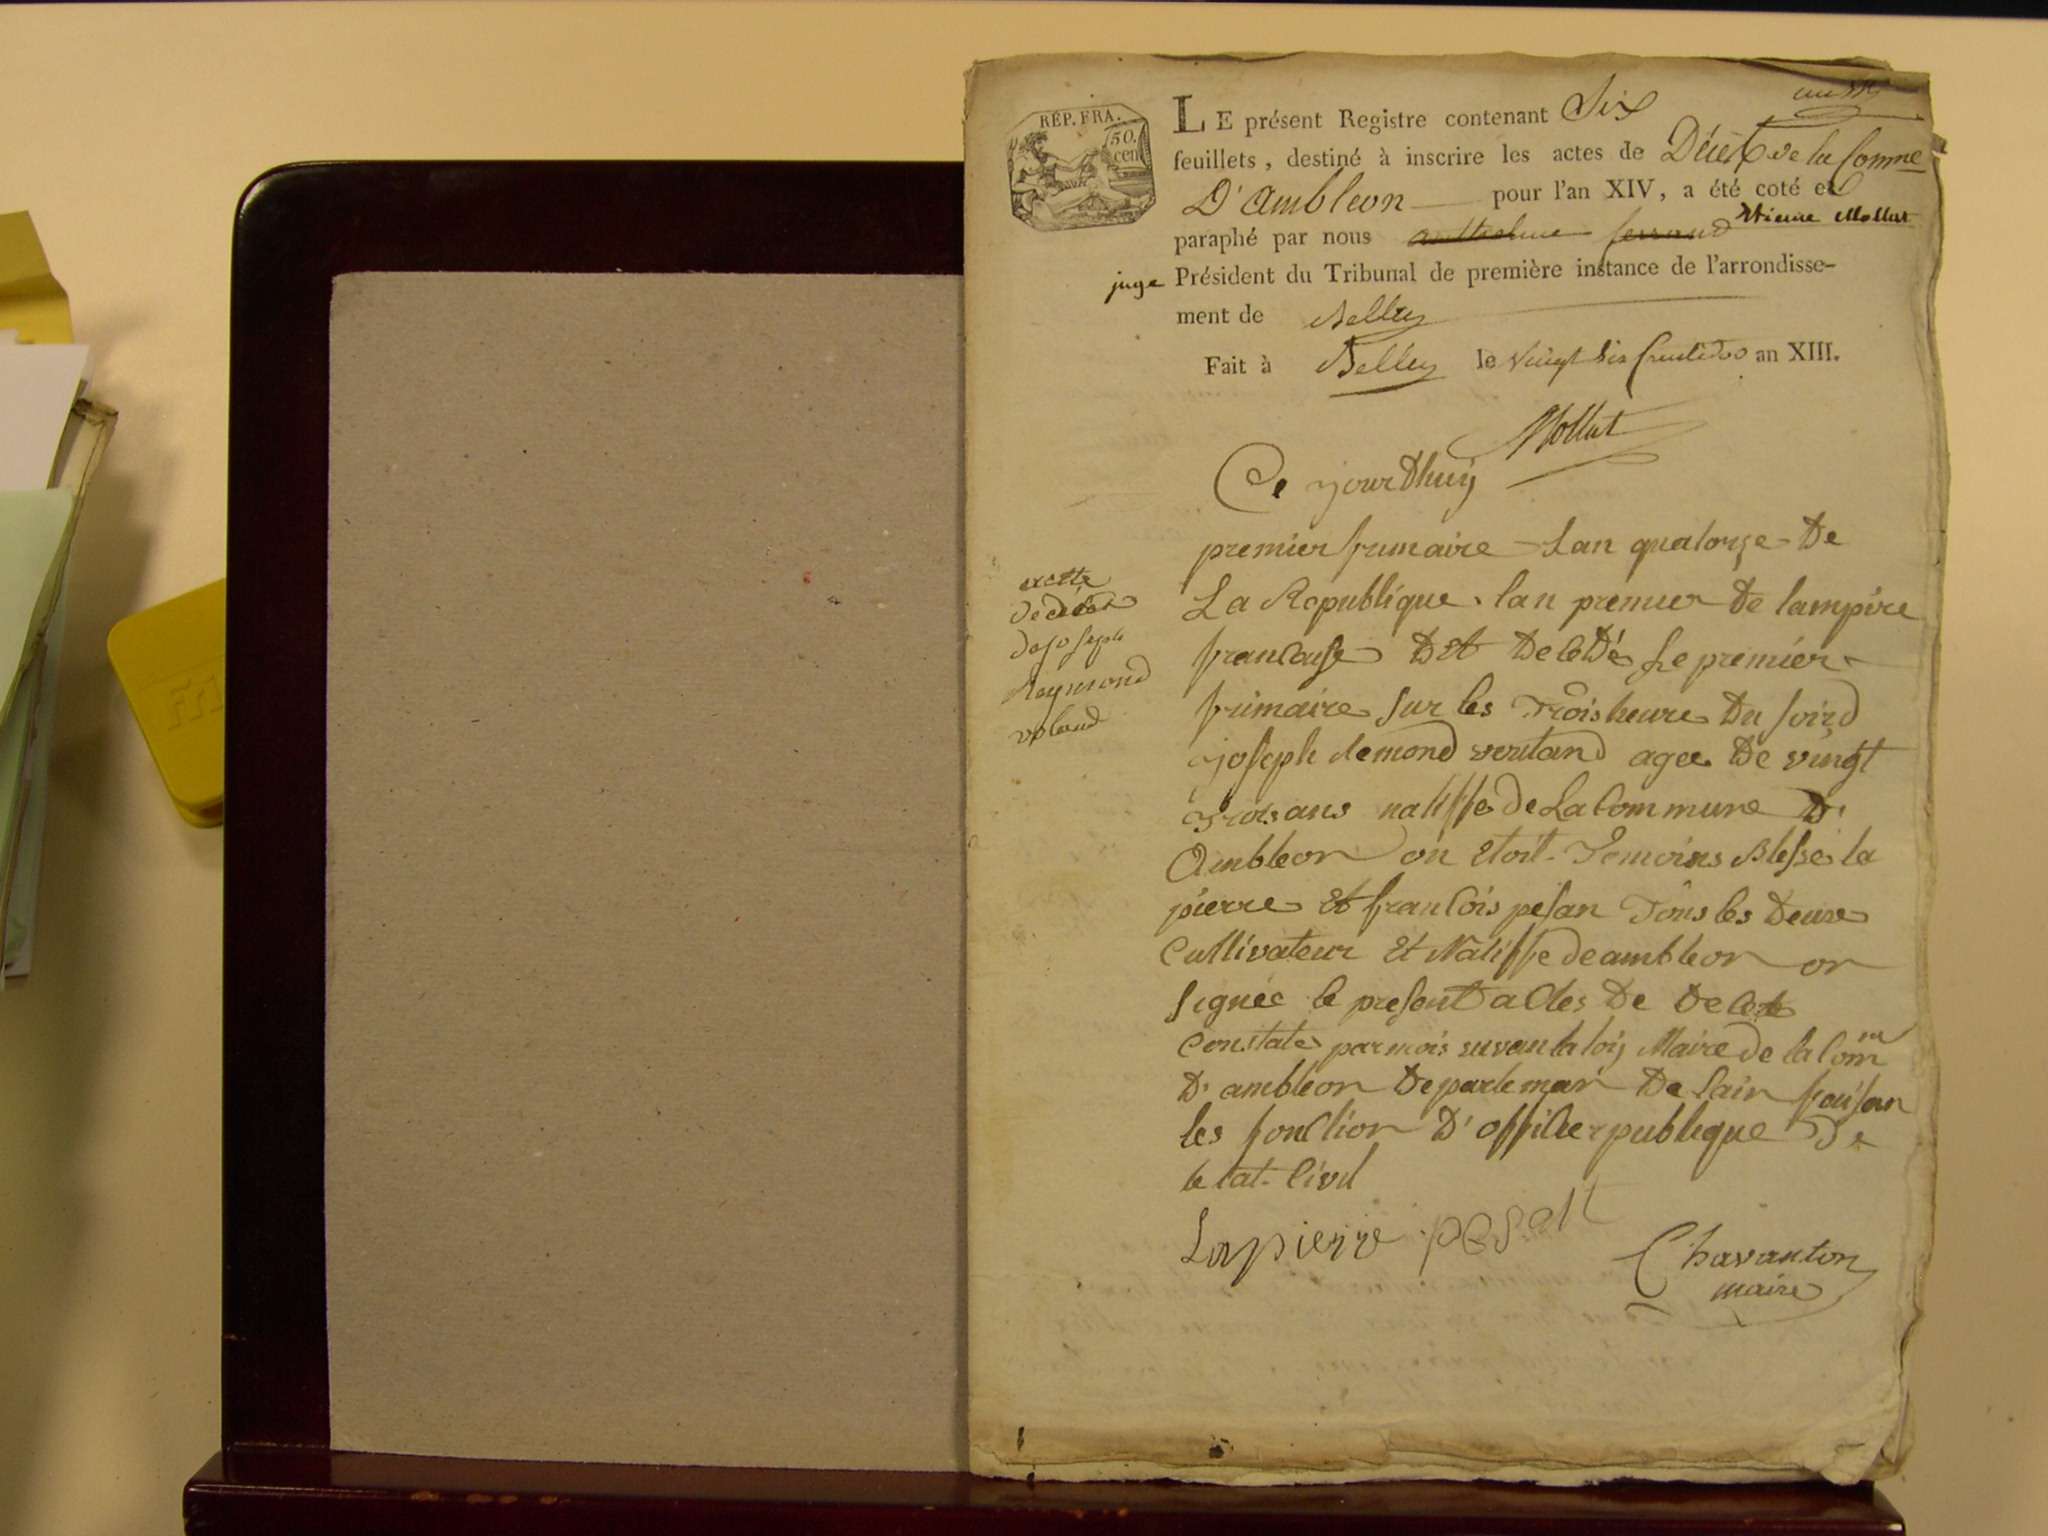 RÉP. FRA.
50.
cen
LE présent Registre contenant Six
feuillets, destiné à inscrire les actes de Décès de la Comne
D'Ambleon pour l'an XIV, a été coté et
paraphé par nous anthelme ferrand Etienne Mollet
juge Président du Tribunal de première instance de l'arrondisse-
ment de Belley
Fait à Belley le vingt six fructidor an XIII.
Mollet
Ce jourdhuij
premier frimaire Lan quatorze De
La Republique lan premier De lampire
francoise Det DeceDé Le premier
frimaire sur les Troisheure Du soird
joseph Remond voulanD agee De vingt
Trois ans natiffe De La Commune D'
Ambleon ou etoit Temoins Blesse la
pierre et francois pesan Tous les Deux
Cultivateur et Natiffe de ambleon on
signée le present actes De Deces
Constate par mois suvan la loij Maire de la Comm
D'ambleon Departeman De Lain faisan
les fonction D'officier publique De
letat Civil
Lapierre pesant
Chavanton
maire
acctte
de décès
de joseph
Reymond
voland